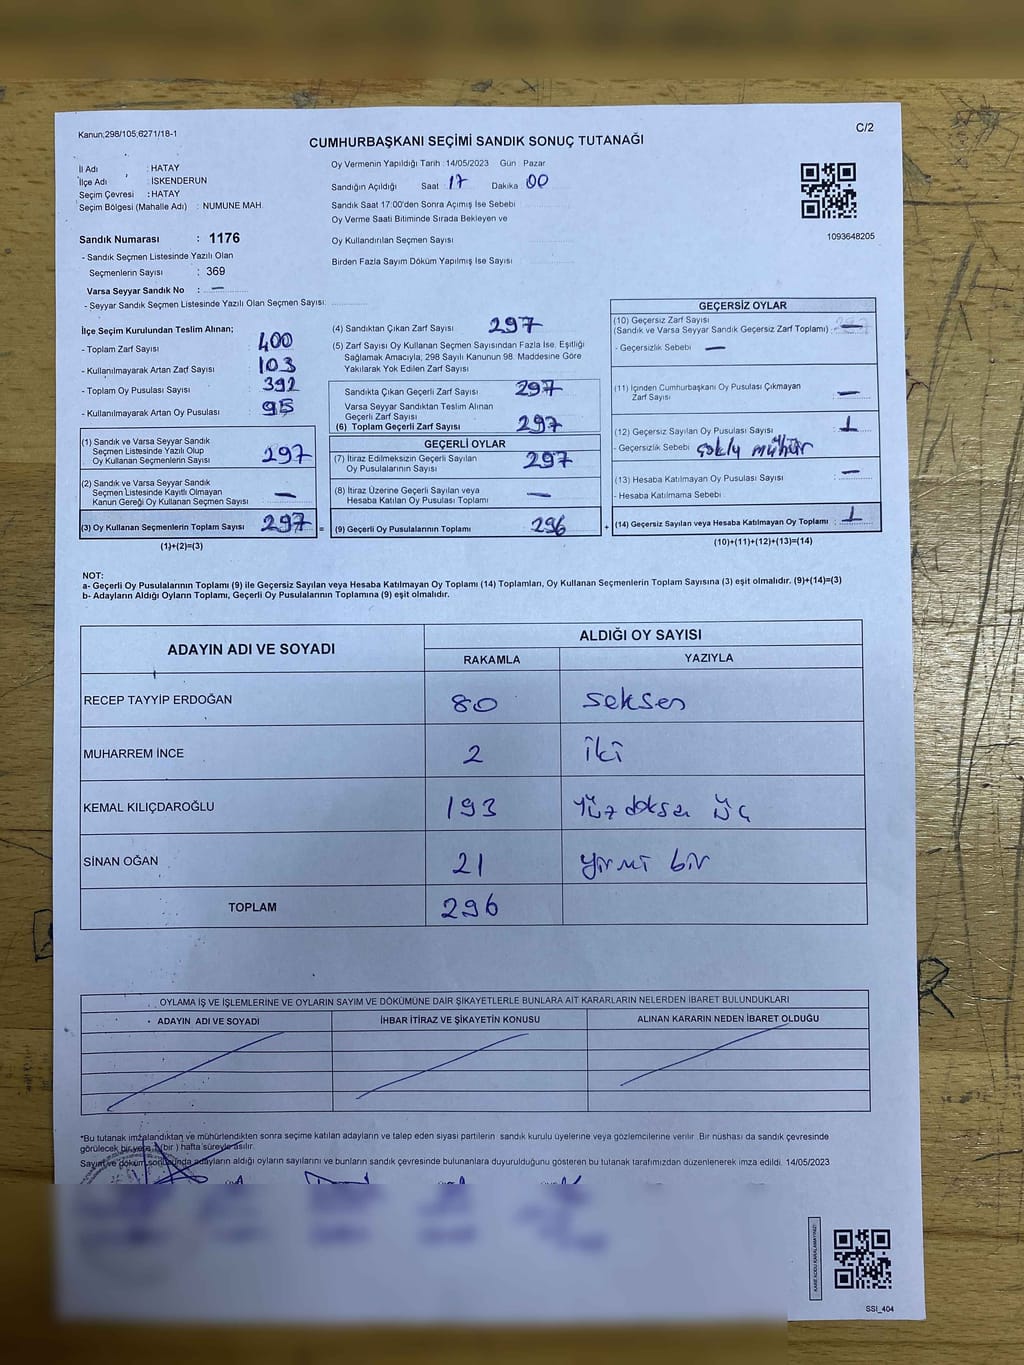 Kanun;298/105;6271/18-1
C/2
CUMHURBAŞKANI SEÇİMİ SANDIK SONUÇ TUTANAĞI
İl Adı : HATAY
İlçe Adı : İSKENDERUN
Seçim Çevresi : HATAY
Seçim Bölgesi (Mahalle Adı) : NUMUNE MAH.
Oy Vermenin Yapıldığı Tarih : 14/05/2023 Gün Pazar
Sandığın Açıldığı Saat : 17 Dakika 00
Sandık Saat 17:00'den Sonra Açımış İse Sebebi
Oy Verme Saati Bitiminde Sırada Bekleyen ve
Oy Kullandırılan Seçmen Sayısı
Birden Fazla Sayım Döküm Yapılmış İse Sayısı
1093648205
Sandık Numarası : 1176
- Sandık Seçmen Listesinde Yazılı Olan
Seçmenlerin Sayısı : 369
Varsa Seyyar Sandık No : —
- Seyyar Sandık Seçmen Listesinde Yazılı Olan Seçmen Sayısı:
İlçe Seçim Kurulundan Teslim Alınan;
- Toplam Zarf Sayısı : 400
- Kullanılmayarak Artan Zarf Sayısı : 103
- Toplam Oy Pusulası Sayısı : 392
- Kullanılmayarak Artan Oy Pusulası : 95
(1) Sandık ve Varsa Seyyar Sandık
Seçmen Listesinde Yazılı Olup
Oy Kullanan Seçmenlerin Sayısı : 297
(2) Sandık ve Varsa Seyyar Sandık
Seçmen Listesinde Kayıtlı Olmayan
Kanun Gereği Oy Kullanan Seçmen Sayısı —
(3) Oy Kullanan Seçmenlerin Toplam Sayısı : 297 =
(1)+(2)=(3)
(4) Sandıktan Çıkan Zarf Sayısı 297
(5) Zarf Sayısı Oy Kullanan Seçmen Sayısından Fazla İse, Eşitliği
Sağlamak Amacıyla, 298 Sayılı Kanunun 98. Maddesine Göre
Yakılarak Yok Edilen Zarf Sayısı
Sandıkta Çıkan Geçerli Zarf Sayısı 297
Varsa Seyyar Sandıktan Teslim Alınan
Geçerli Zarf Sayısı
(6) Toplam Geçerli Zarf Sayısı 297
GEÇERLİ OYLAR
(7) İtiraz Edilmeksizin Geçerli Sayılan
Oy Pusulalarının Sayısı 297
(8) İtiraz Üzerine Geçerli Sayılan veya
Hesaba Katılan Oy Pusulası Toplamı —
(9) Geçerli Oy Pusulalarının Toplamı 296 +
GEÇERSİZ OYLAR
(10) Geçersiz Zarf Sayısı
(Sandık ve Varsa Seyyar Sandık Geçersiz Zarf Toplamı) : —
- Geçersizlik Sebebi —
(11) İçinden Cumhurbaşkanı Oy Pusulası Çıkmayan
Zarf Sayısı —
(12) Geçersiz Sayılan Oy Pusulası Sayısı : 1
- Geçersizlik Sebebi çoklu mühür
(13) Hesaba Katılmayan Oy Pusulası Sayısı —
- Hesaba Katılmama Sebebi
(14) Geçersiz Sayılan veya Hesaba Katılmayan Oy Toplamı : 1
(10)+(11)+(12)+(13)=(14)
NOT:
a- Geçerli Oy Pusulalarının Toplamı (9) ile Geçersiz Sayılan veya Hesaba Katılmayan Oy Toplamı (14) Toplamları, Oy Kullanan Seçmenlerin Toplam Sayısına (3) eşit olmalıdır. (9)+(14)=(3)
b- Adayların Aldığı Oyların Toplamı, Geçerli Oy Pusulalarının Toplamına (9) eşit olmalıdır.
ADAYIN ADI VE SOYADI
ALDIĞI OY SAYISI
RAKAMLA YAZIYLA
RECEP TAYYİP ERDOĞAN 80 seksen
MUHARREM İNCE 2 iki
KEMAL KILIÇDAROĞLU 193 Yüz doksan üç
SİNAN OĞAN 21 yirmi bir
TOPLAM 296
OYLAMA İŞ VE İŞLEMLERİNE VE OYLARIN SAYIM VE DÖKÜMÜNE DAİR ŞİKAYETLERLE BUNLARA AİT KARARLARIN NELERDEN İBARET BULUNDUKLARI
ADAYIN ADI VE SOYADI İHBAR İTİRAZ VE ŞİKAYETİN KONUSU ALINAN KARARIN NEDEN İBARET OLDUĞU
*Bu tutanak imzalandıktan ve mühürlendikten sonra seçime katılan adayların ve talep eden siyasi partilerin sandık kurulu üyelerine veya gözlemcilerine verilir. Bir nüshası da sandık çevresinde
görülecek bir yere 1(bir) hafta süreyle asılır.
Sayım ve döküm sonucunda adayların aldığı oyların sayılarını ve bunların sandık çevresinde bulunanlara duyurulduğunu gösteren bu tutanak tarafımızdan düzenlenerek imza edildi. 14/05/2023
SSI_404